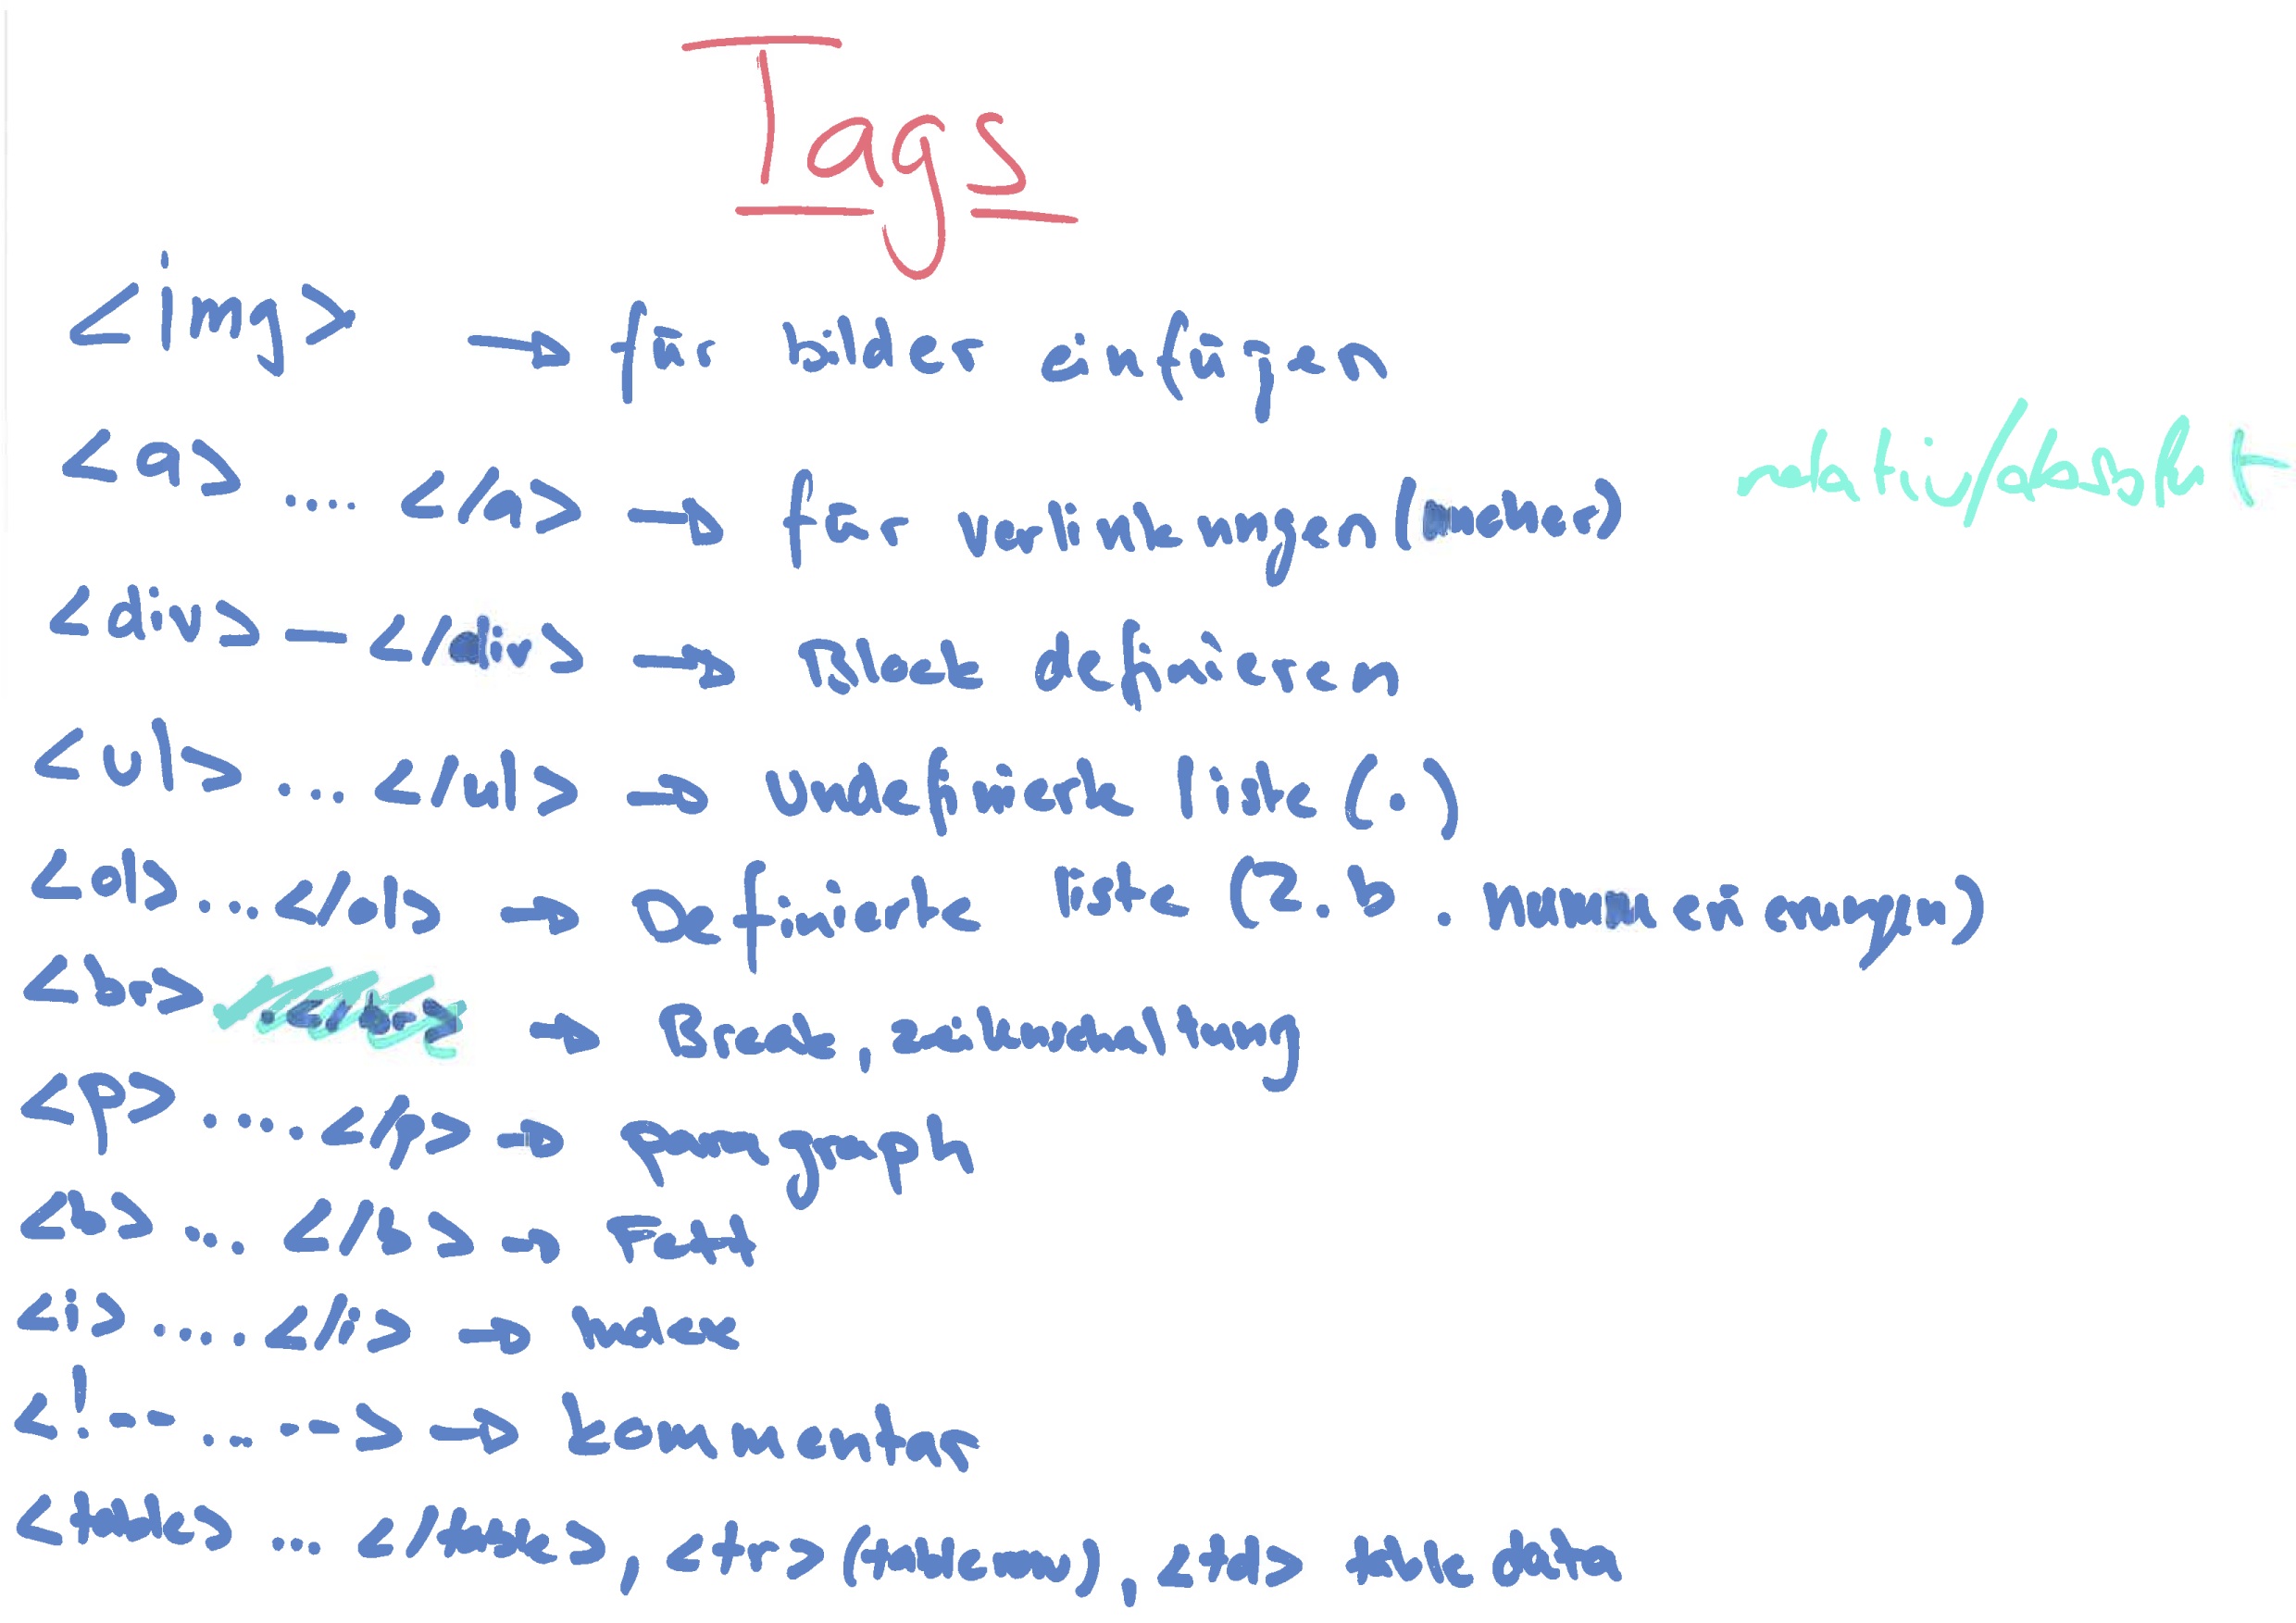 Tags
<img> → für bilder einfügen
<a> .... </a> → für verlinkungen (ancher) relativ/absolut
<div> — </div> → Block definieren
<ul> .... </ul> → Undefinierte liste (.)
<ol> .... </ol> → Definierte liste (z.b. nummerierungen)
<br> → Break, zeilenschaltung
<p> ..... </p> → paragraph
<b> .... </b> → Fett
<i> ..... </i> →
<!-- ... --> → kommentar
<table> ... </table>, <tr> (tablerow), <td> table data